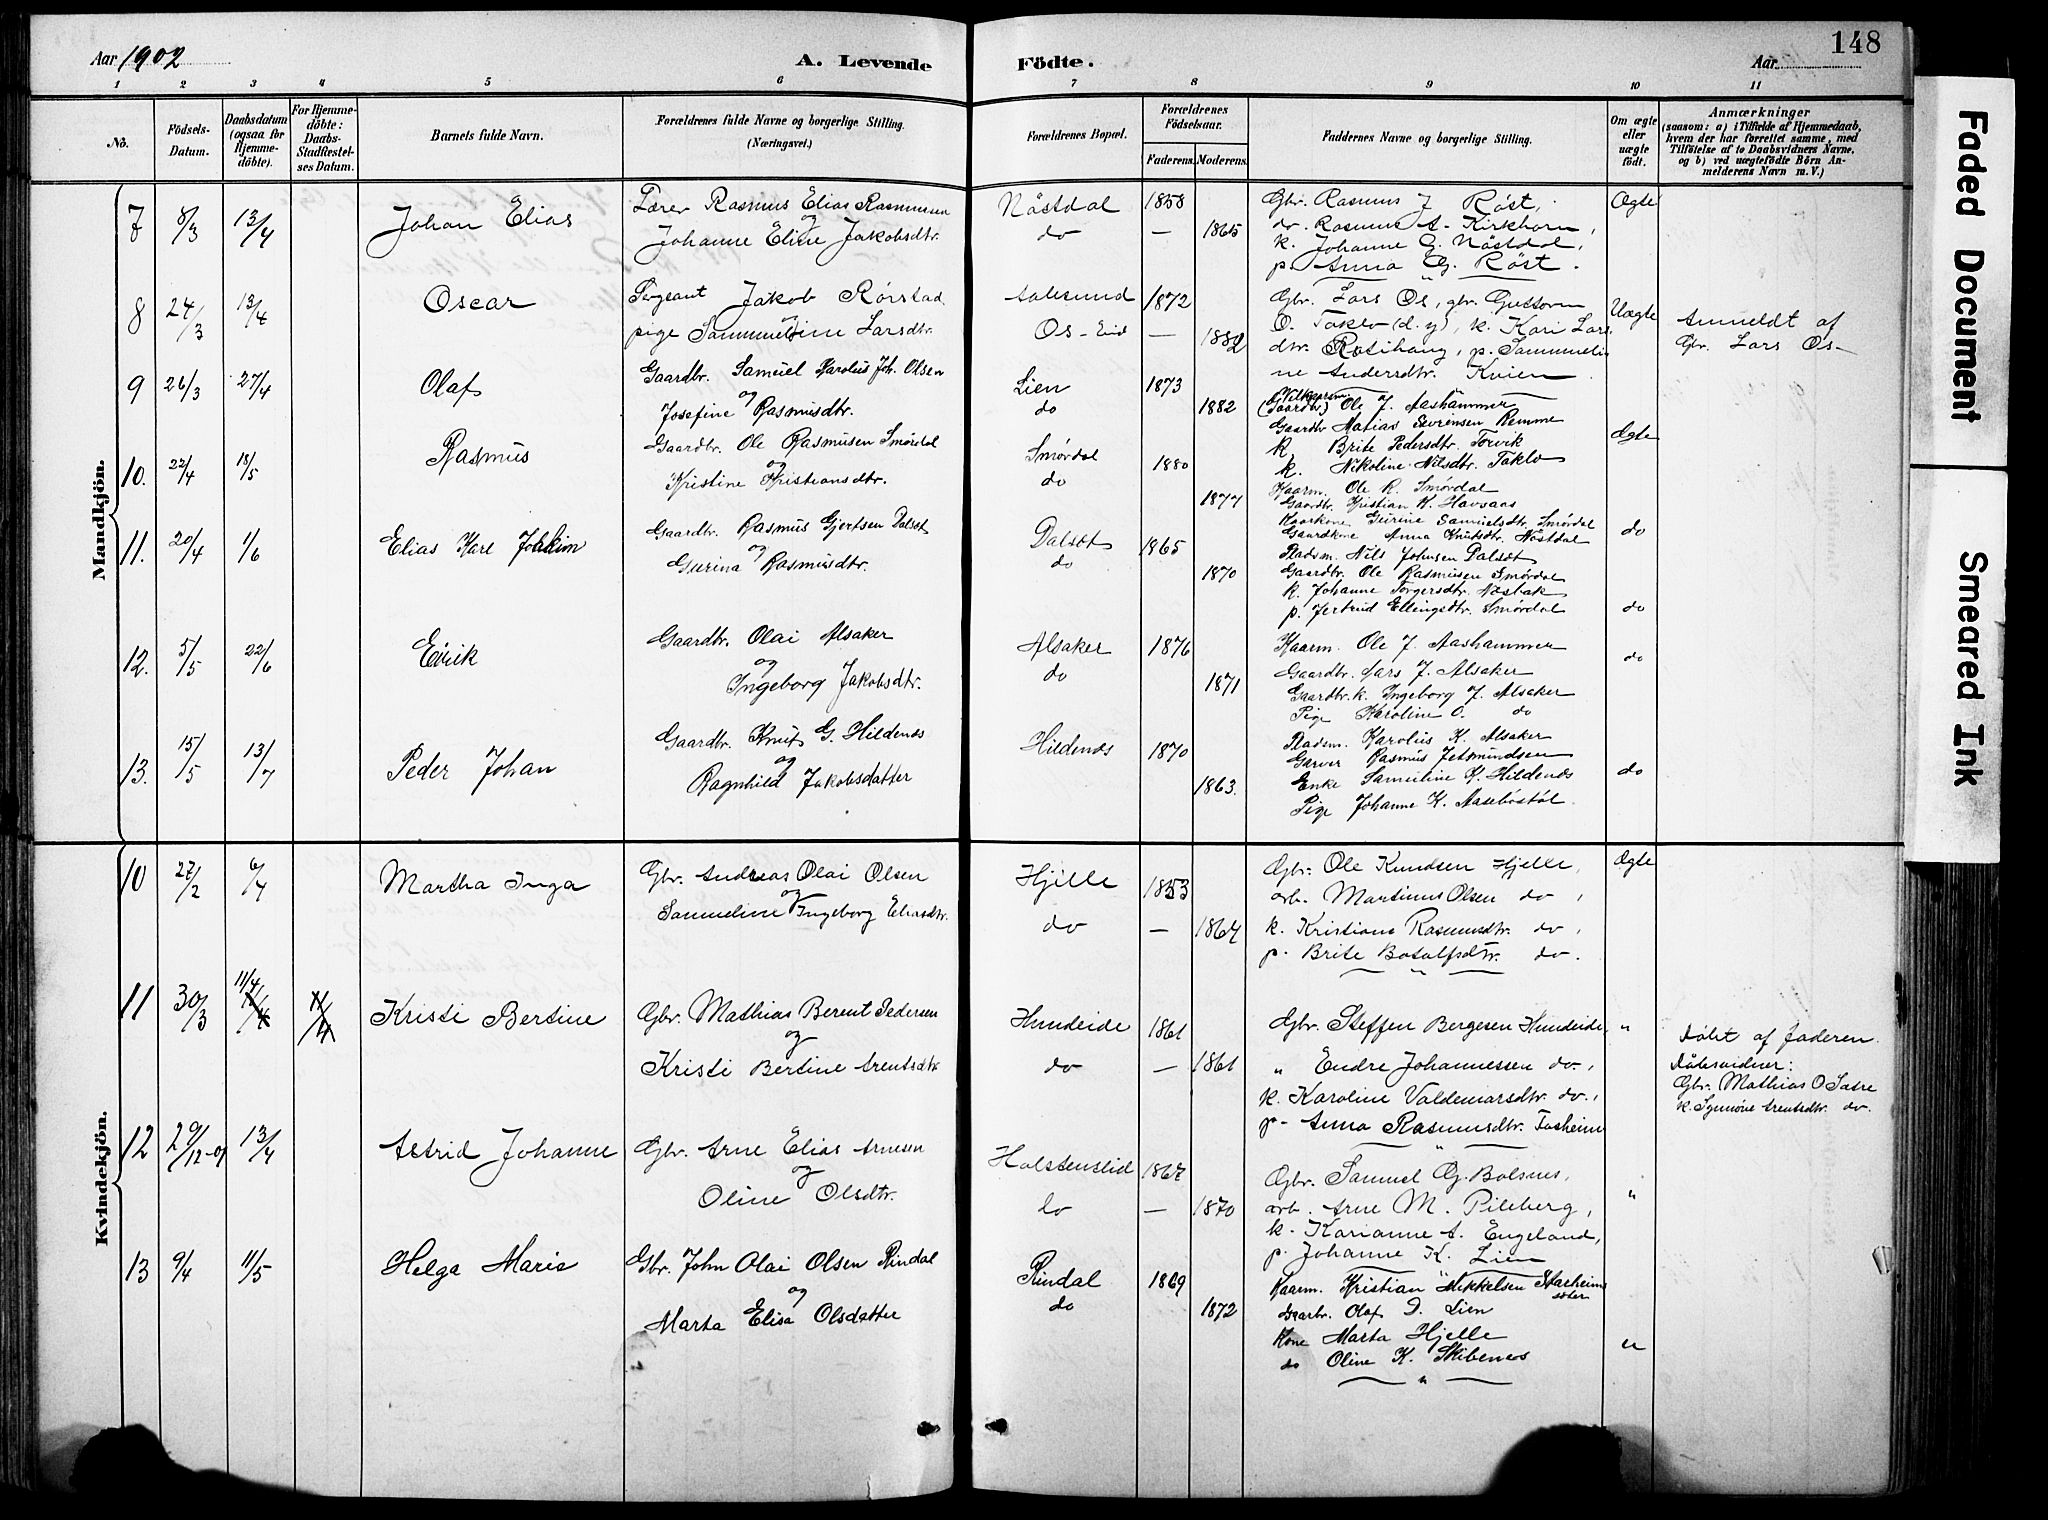 Aar 1902
A. Levende
Födte.
Aar
148
1 2 3 4 5 6 7 8 9 10 11
No.
Födsels-Datum.
Daabsdatum (ogsaa for Hjemmedöbte).
For Hjemmedöbte: Daabs-Stadfæstelses Datum.
Barnets fulde Navn.
Forældrenes fulde Navne og borgerlige Stilling. (Næringsvei.)
Forældrenes Bopæl.
Forældrenes Födselsaar.
Faderens. Moderens.
Faddernes Navne og borgerlige Stilling.
Om ægte eller uægte födt.
Anmærkninger
(saasom: a) i Tilfælde af Hjemmedaab, hvem der har forrettet samme, med Tilföielse af to Daabsvidners Navne, og b) ved uægtefödte Börn Anmelderens Navn m. V.)
Mandkjön.
7 8/3 13/4 Johan Elias
Lærer Rasmus Elias Rasmussen
og
Johanne Eline Jakobsdtr.
Nåstdal 1858
do — 1865
Gbr. Rasmus J Røst,
do. Rasmus A. Kirkhorn,
k. Johanne G. Nåstdal,
p. Anna G. Røst.
Ægte
8 24/3 13/4 Oscar
Sergeant Jakob Rørstad
og
pige Sammueline Larsdtr.
Aalesund 1872
Os-Eid — 1882
Gbr. Lars Os, gbr. Guttorm
O. Taklo (d. y), k. Kari Lars
dtr. Rotihaug, p. Sammueli
ne Andersdtr. Kvien
Uægte
Anmeldt af
Gbr. Lars Os—
9 26/3 27/4 Olaf
Gaardbr. Samuel Karolus Joh. Olsen
og
Josefine Rasmusdtr.
Lien 1873
do 1882
(Gaardbr) Ole J. Aashammer
Gaardbr Matias Severensen Remme
k. Brite Pedersdtr. Torvik
k. Nikoline Nilsdtr. Taklo
Ægte
10. 22/4 18/5 Rasmus
Gaardbr. Ole Rasmusen Smørdal
og
Kristine Kristiansdtr.
Smørdal 1880
do 1877
Kaarm. Ole R. Smørdal
Gaardbr. Kristian K. Havsaas
Kaarkone Gurine Samuelsdtr. Smørdal
Gaardkone Anna Knutsdtr. Nåstdal
do
11. 20/4 1/6 Elias Karl Johkim
Gaardbr. Rasmus Gjertsen Dalsøt
og
Gurina Rasmusdtr.
Dalsøt 1865
do 1870
Pladsm. Nils Johnsen Dalsøt
Gaardbr. Ole Rasmusen Smørdal
k. Johanne Torgersdtr. Nåsbak
p. Jertrud Ellingsdtr. Smørdal
do
12. 5/5 22/6 Eirik
Gaardbr. Olai Alsaker
og
Ingeborg Jakobsdtr.
Alsaker 1876
do 1871
Kaarm. Ole J. Aashammer
Gaardbr. Lars J. Alsaker
Gaardbr.k. Ingeborg J. Alsaker
Pige Karoline O. do
do
13. 15/5 13/7 Peder Johan
Gaardbr. Knut G. Hildenes
og
Ragnhild Jakobsdatter
Hildenes 1870
1863.
Pladsm. Karolus K. Alsaker
Garver Rasmus Jetmundsen
Enke Samueline R. Hildenes
Pige Johanne K. Aasebøstøl.
do
Kvindekjön.
10 27/2 6/4 Martha Inga
Gbr. Andreas Olai Olsen
og
Sammeline Ingeborg Eliasdtr.
Hjelle 1853
do — 1864
Gbr. Ole Knudsen Hjelle,
arb. Martinus Olsen do,
k. Kristiane Rasmusdtr. do,
p. Brite Botolfsdtr. do.
Ægte
11 30/3 11/4 11/4 Kristi Bertine
Gbr. Mathias Berent Pedersen
og
Kristi Bertine Arentsdtr
Hundeide 1861
do — 1861
Gbr. Steffen Bergesen Hundeide,
" Endre Johannessen do,
k. Karoline Valdemarsdtr. do,
p. Anna Rasmusdtr. Tasheim
"
Døbt af faderen.
Dåbsvidner:
Gbr. Mathias O Satre
k. Synnøve Arentsdtr. do.
12 29/12-01 13/4 Astrid Johanne
Gbr. Arne Elias Arnesen
og
Oline Olsdtr.
Holstenslid 1867
do — 1870
Gbr. Samuel G. Bolsnes,
arb. Arne M. Pileberg,
k. Karianne A. Engeland,
p. Johanne K. Lien
"
13 9/4 11/5 Helga Marie
Gbr. John Olai Olsen Rindal
og
Marta Elisa Olsdatter
Rindal 1869
do 1872
Kaarm. Kristian Mikkelsen Starheim
Gaarbr. Olaf I. Lien
Kone Marta Hjelle
do Oline K. Skibenes
"
Faded Document
Smeared Ink